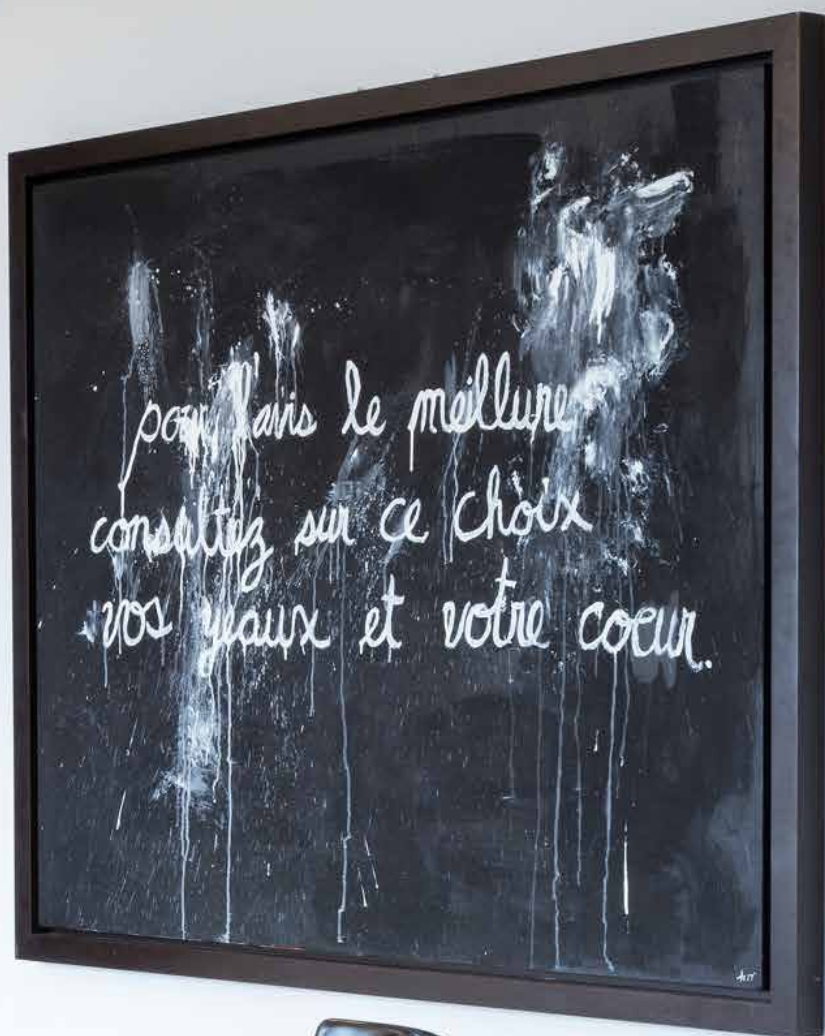 pour l'avis le meillure
consultez sur ce choix
vos yeaux et votre coeur.